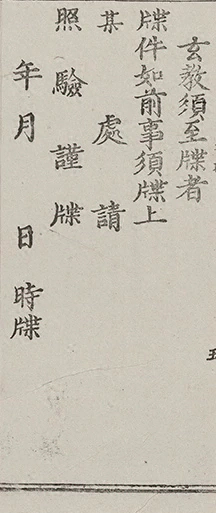 玄教須至牒者
牒件如前事須牒上
某處請
照驗謹牒
年月日時牒